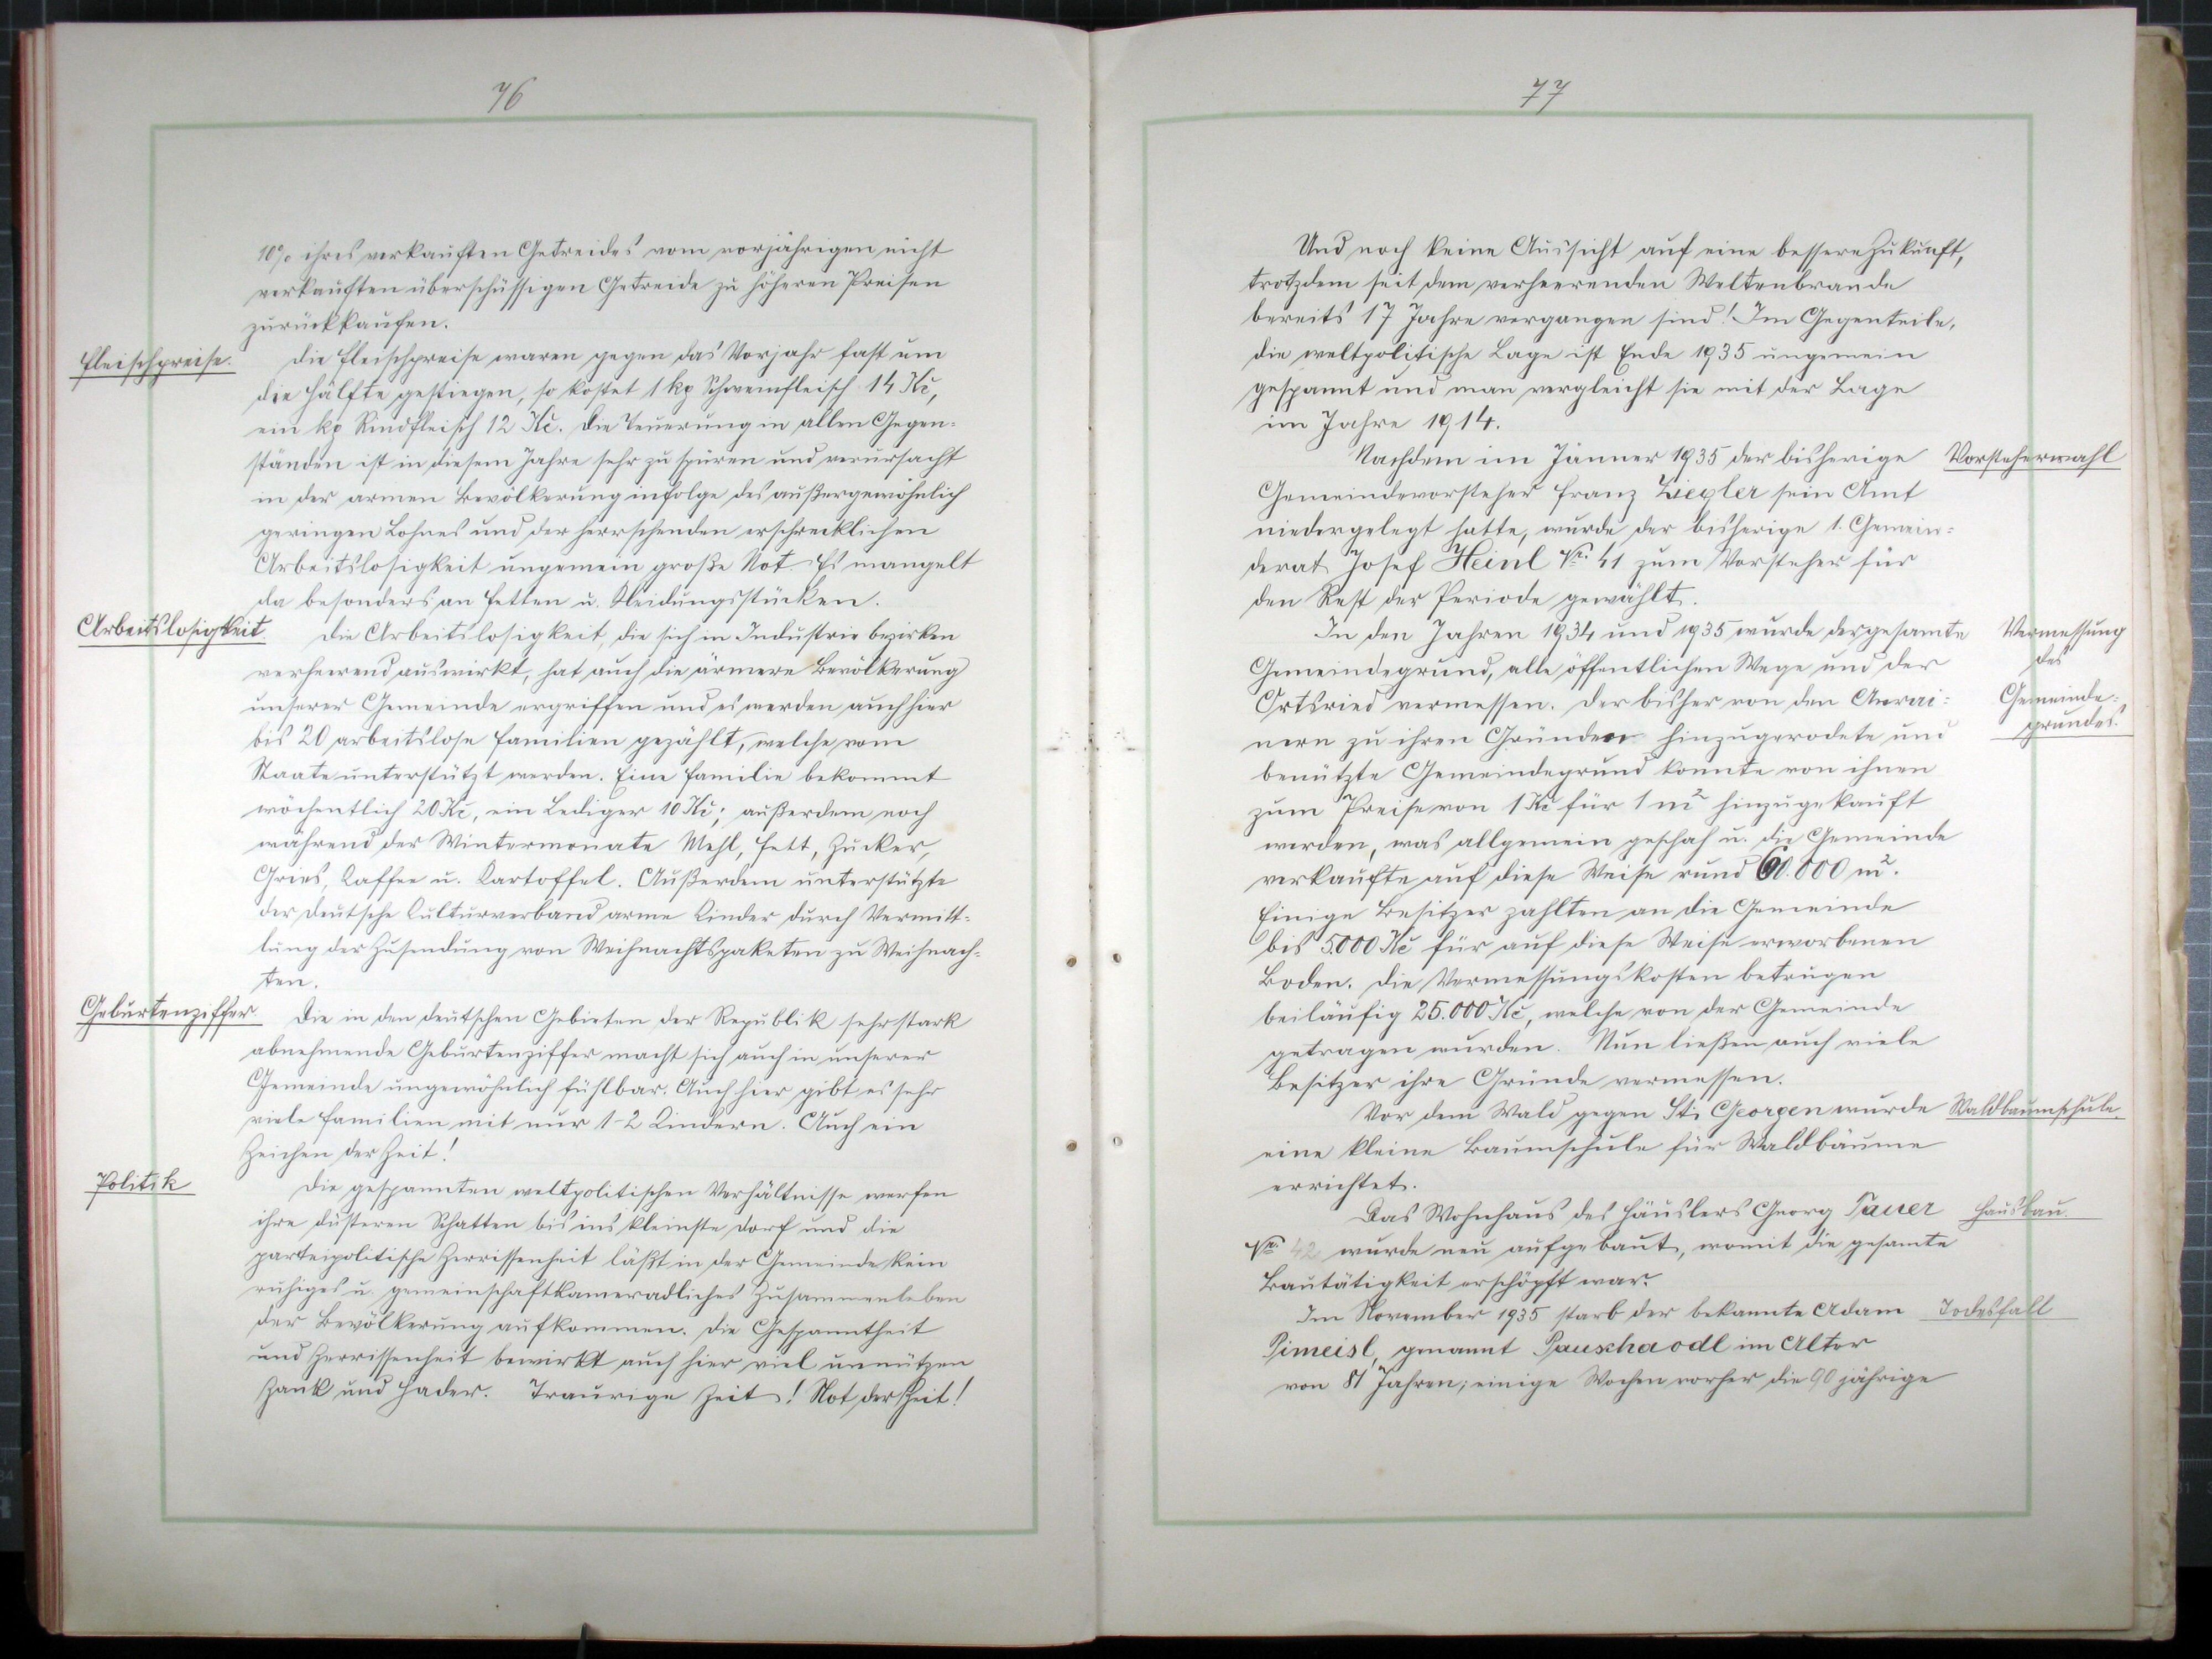 76
10% ihres verkauften Getreides vom vorjährigen nicht
verkauften überschüssigen Getreide zu höheren Preisen
zurückkaufen.
Fleischpreise.
Die Fleischpreise waren gegen das Vorjahr fast um
die Hälfte gestiegen, so kostet 1 kg Schweinfleisch 14 Kč,
ein kg Rindfleisch 12 Kč. Die Teuerung in allen Gegen-
ständen ist in diesem Jahre sehr zu spüren und verursacht
in der armen Bevölkerung infolge des außergewöhnlich
geringen Lohnes und der herrschenden erschrecklichen
Arbeitslosigkeit ungemein große Not. Es mangelt
da besonders an Fetten u. Kleidungsstücken.
Arbeitslosigkeit
Die Arbeitslosigkeit, die sich in Industrie bezirken
verheerend auswirkt, hat auch die ärmere Bevölkerung
unserer Gemeinde ergriffen und es werden auch hier
bis 20 arbeitslose Familien gezählt, welche vom
Staate unterstützt werden. Eine Familie bekommt
wöchentlich 20 Kč, ein Lediger 10 Kč; außerdem noch
während der Wintermonate Mehl, Fett, Zucker,
Gries, Kaffee u. Kartoffel. Außerdem unterstützte
der deutsche Kulturverband arme Kinder durch Vermitt-
lung der Zusendung von Weihnachtspaketen zu Weihnach-
ten.
Geburtenziffer
Die in den deutschen Gebieten der Republik sehr stark
abnehmende Geburtenziffer macht sich auch in unserer
Gemeinde ungewöhnlich fühlbar. Auch hier gibt es sehr
viele Familien mit nur 1-2 Kindern. Auch ein
Zeichen der Zeit!
Politik
Die gespannten weltpolitischen Verhältnisse werfen
ihre düsteren Schatten bis ins kleinste Dorf und die
parteipolitische Zerrissenheit läßt in der Gemeinde kein
ruhiges u. gemeinschaftkameradliches Zusammenleben
der Bevölkerung aufkommen. Die Gespanntheit
und Zerrissenheit bewirkt auch hier viel unnützen
Zank und Hader. Traurige Zeit! Not der Zeit!
77
Und noch keine Aussicht auf eine bessere Zukunft,
trotzdem seit dem verheerenden Weltenbrande
bereits 17 Jahre vergangen sind! Im Gegenteile,
die weltpolitische Lage ist Ende 1935 ungemein
gespannt und man vergleicht sie mit der Lage
im Jahre 1914.
Nachdem im Jänner 1935 der bisherige
Vorsteherwahl
Gemeindevorsteher Franz Ziegler sein Amt
niedergelegt hatte, wurde der bisherige 1. Gemein-
derat Josef Heinl Nr. 41 zum Vorsteher für
den Rest der Periode gewählt.
In den Jahren 1934 und 1935 wurde der gesamte
Vermessung
des
Gemeinde-
grundes.
Gemeindegrund, alle öffentlichen Wege und der
Ortsried vermessen. Der bisher von den Anrai-
nern zu ihren Gründen hinzugerodete und
benützte Gemeindegrund konnte von ihnen
zum Preise von 1 Kč für 1 m² hinzugekauft
werden, was allgemein geschah u. die Gemeinde
verkaufte auf diese Weise rund 60.000 m².
Einige Besitzer zahlten an die Gemeinde
bis 5000 Kč für auf diese Weise erworbenen
Boden. Die Vermessungskosten betrugen
beiläufig 25.000 Kč, welche von der Gemeinde
getragen wurden. Nun ließen auch viele
Besitzer ihre Gründe vermessen.
Vor dem Wald gegen St. Georgen wurde
Waldbaumschule
eine kleine Baumschule für Waldbäume
errichtet.
Das Wohnhaus des Häuslers Georg Tauer
Hausbau.
Nr. 42 wurde neu aufgebaut, womit die gesamte
Bautätigkeit erschöpft war.
Im November 1935 starb der bekannte Adam
Todesfall
Pimeisl, genannt Pauschaodl im Alter
von 81 Jahren; einige Wochen vorher die 90 jährige